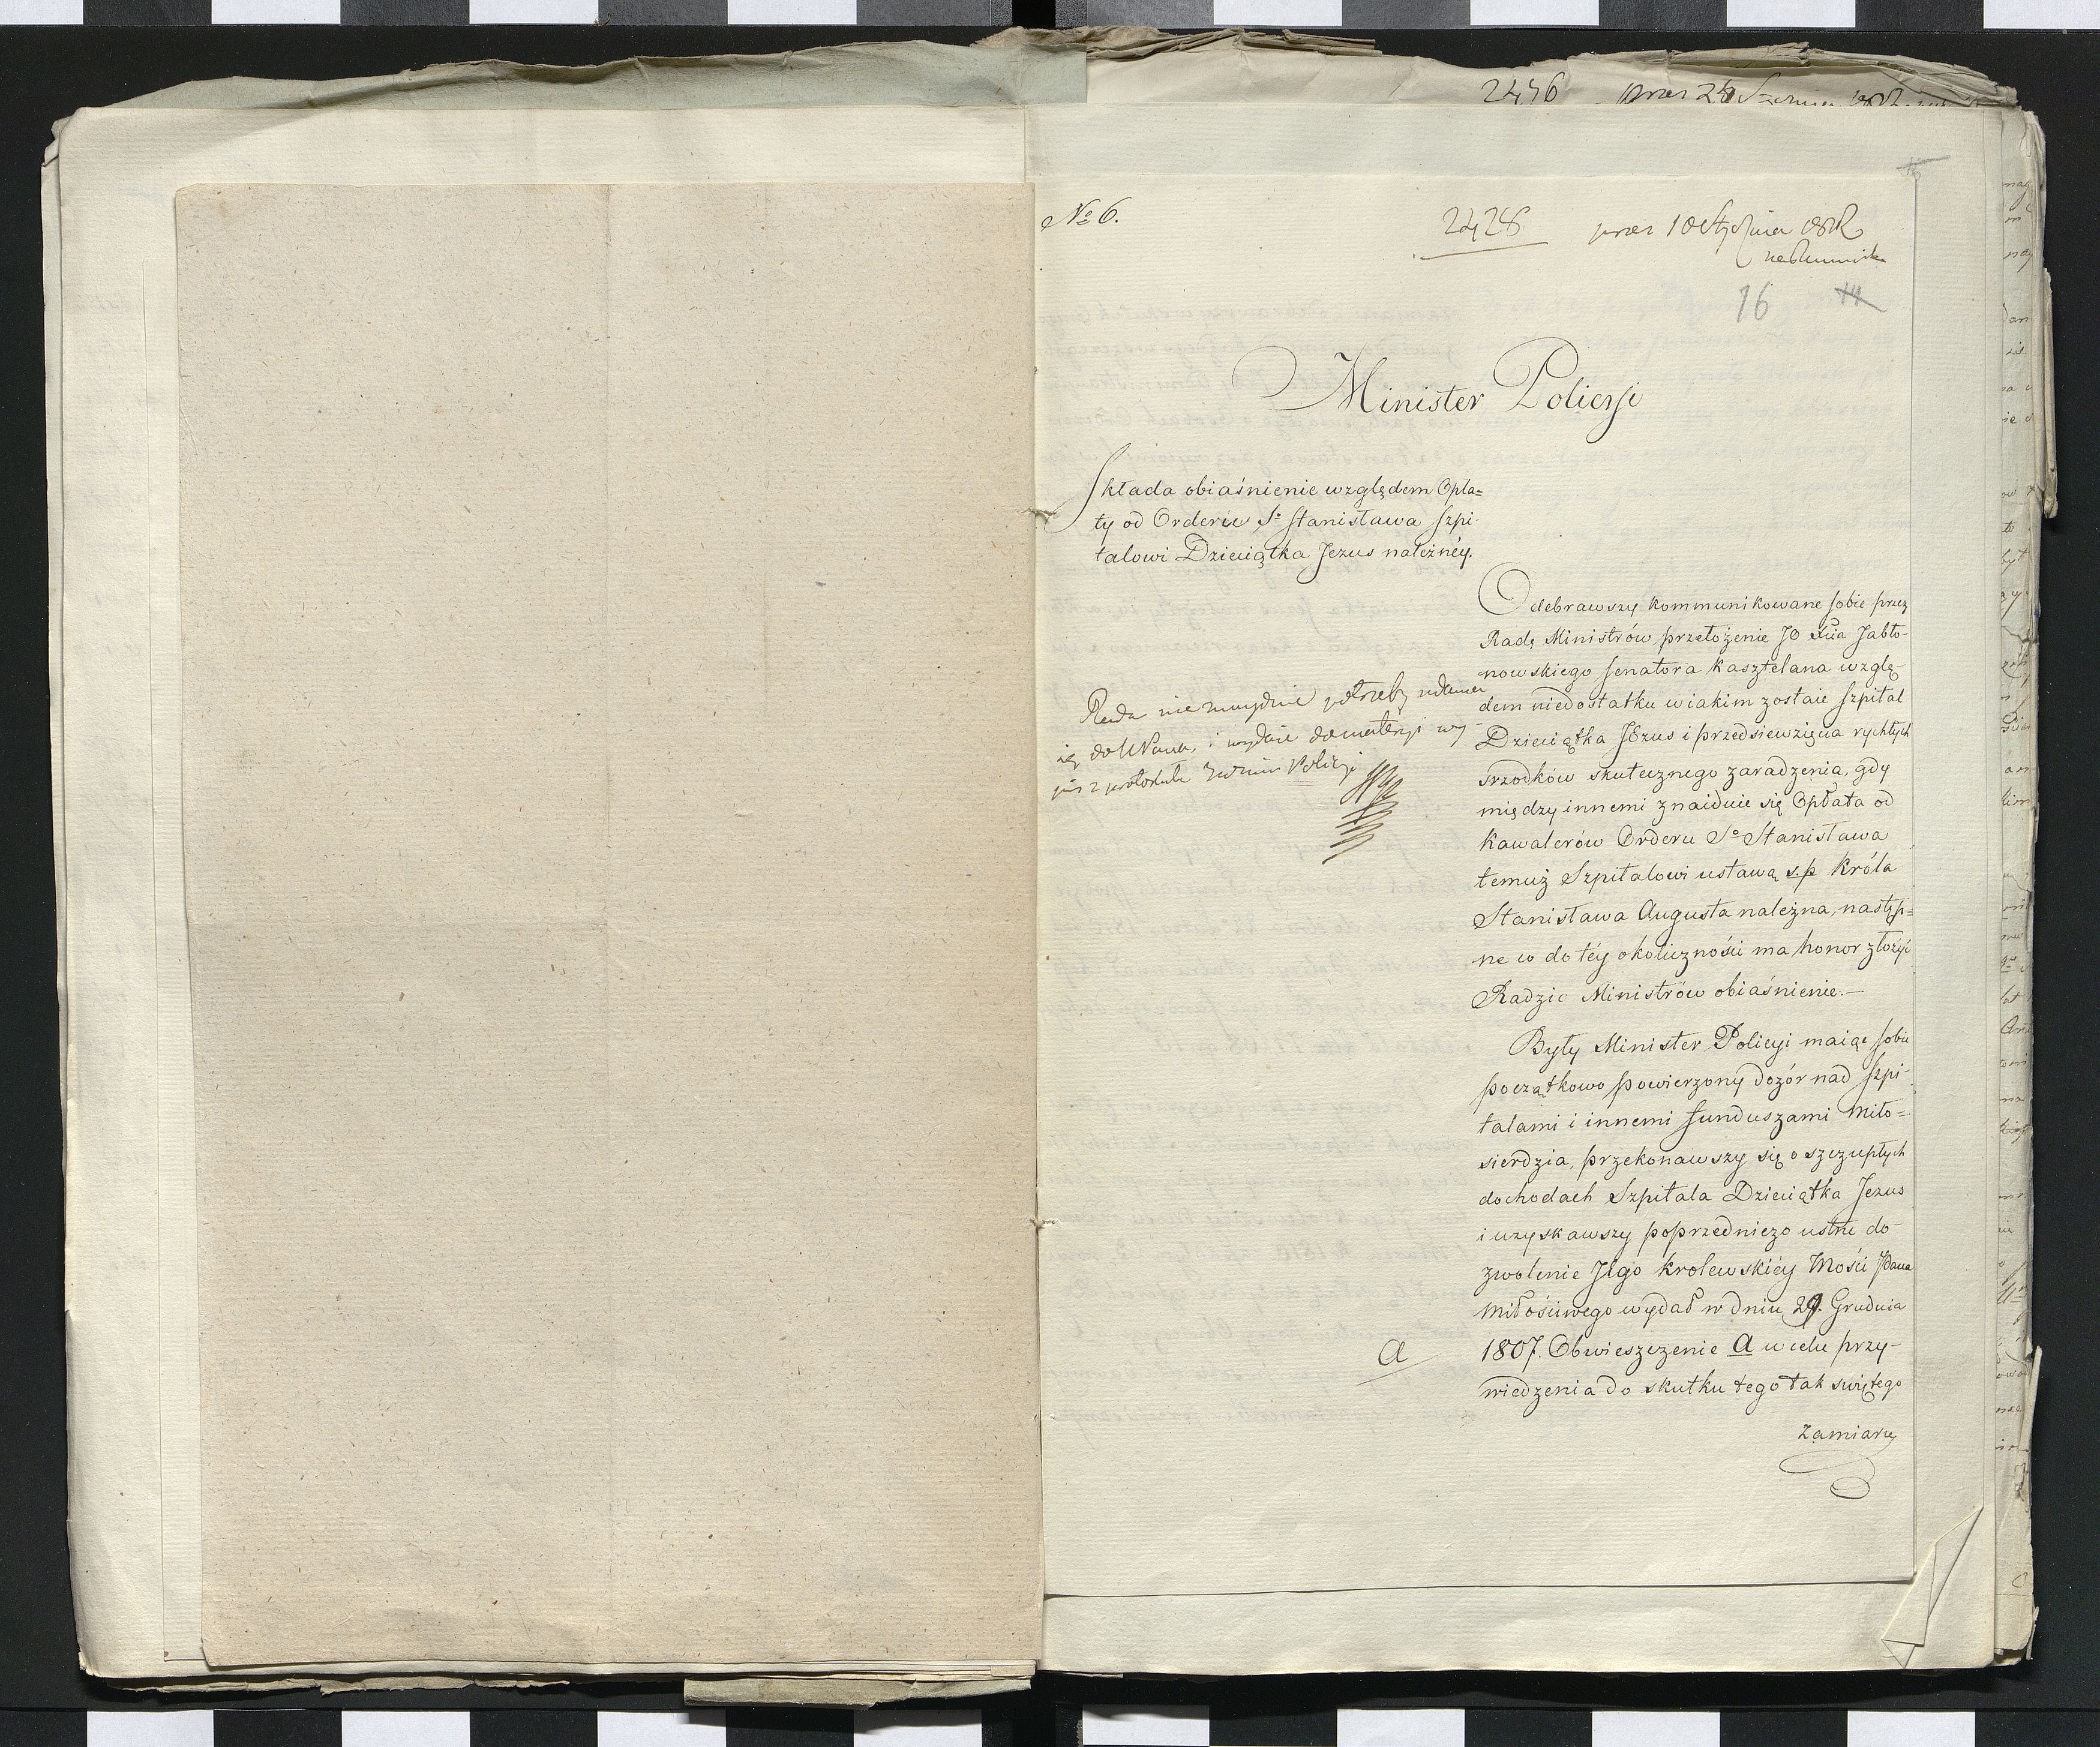 2476
No 6.
2428
16 14
Minister Policyi
Składa obiaśnienie względem Opła=
ty od Orderu So Stanisława Szpi-
talowi Dzieciątka Jezus należnéy.
Odebrawszy kommunikowane sobie przez
Radę Ministrów przełożenie JO Xcia Jabło-
nowskiego Senatora Kasztelana wzglę-
dem niedostatku w iakim zostaie Szpital
Dzieciątka JEzus i przedsiewzięcia rychłych
srzodków skutecznego zaradzenia, gdy
między innemi znaiduie się Opłata od
Kawalerów Orderu So Stanisława
temuż Szpitalowi ustawą s.p Króla
Stanisława Augusta należna, następ=
ne co do téy okoliczności ma honor złożyć
Radzie Ministrów obiaśnienie.—
Rada nie
do wydaie do materyi wy-
z protokułu Policyi
Były Minister Policyi maiąc sobie
początkowo powierzony dozór nad Szpi-
talami i innemi funduszami Miło=
sierdzia, przekonawszy się o szczupłych
dochodach Szpitala Dzieciątka Jezus
i uzyskawszy poprzedniczo ustne do-
zwolenie JEgo Krolewskiéy Mości Pana
Miłościwego wydał w dniu 29. Grudnia
a
1807. Obwieszczenie a w celu przy-
wiedzenia do skutku tego tak swiętego
zamiaru